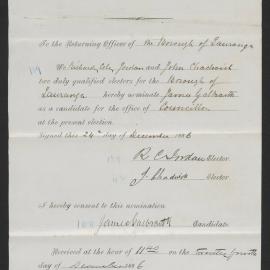 To the Returning Officer of the Borough of Tauranga
We Richard John Jordan and John Chadwick
two duly qualified electors for the Borough of
Tauranga hereby nominate James Galbraith
as a candidate for the office of Councillor
at the present election.
Signed this 24th day of December 1886
R C Jordan Elector
J. Chadwick Elector
I hereby consent to this nomination
James Galbraith Candidate
Received at the hour of 11 40 on the twenty fourth
day of December 1886